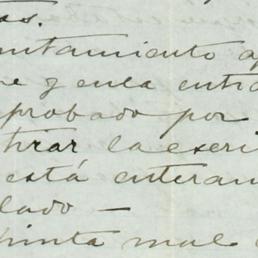 as.
untamiento a
e y en la entra
probado por
tirar la escri
está enteram
lado —
pinta mal